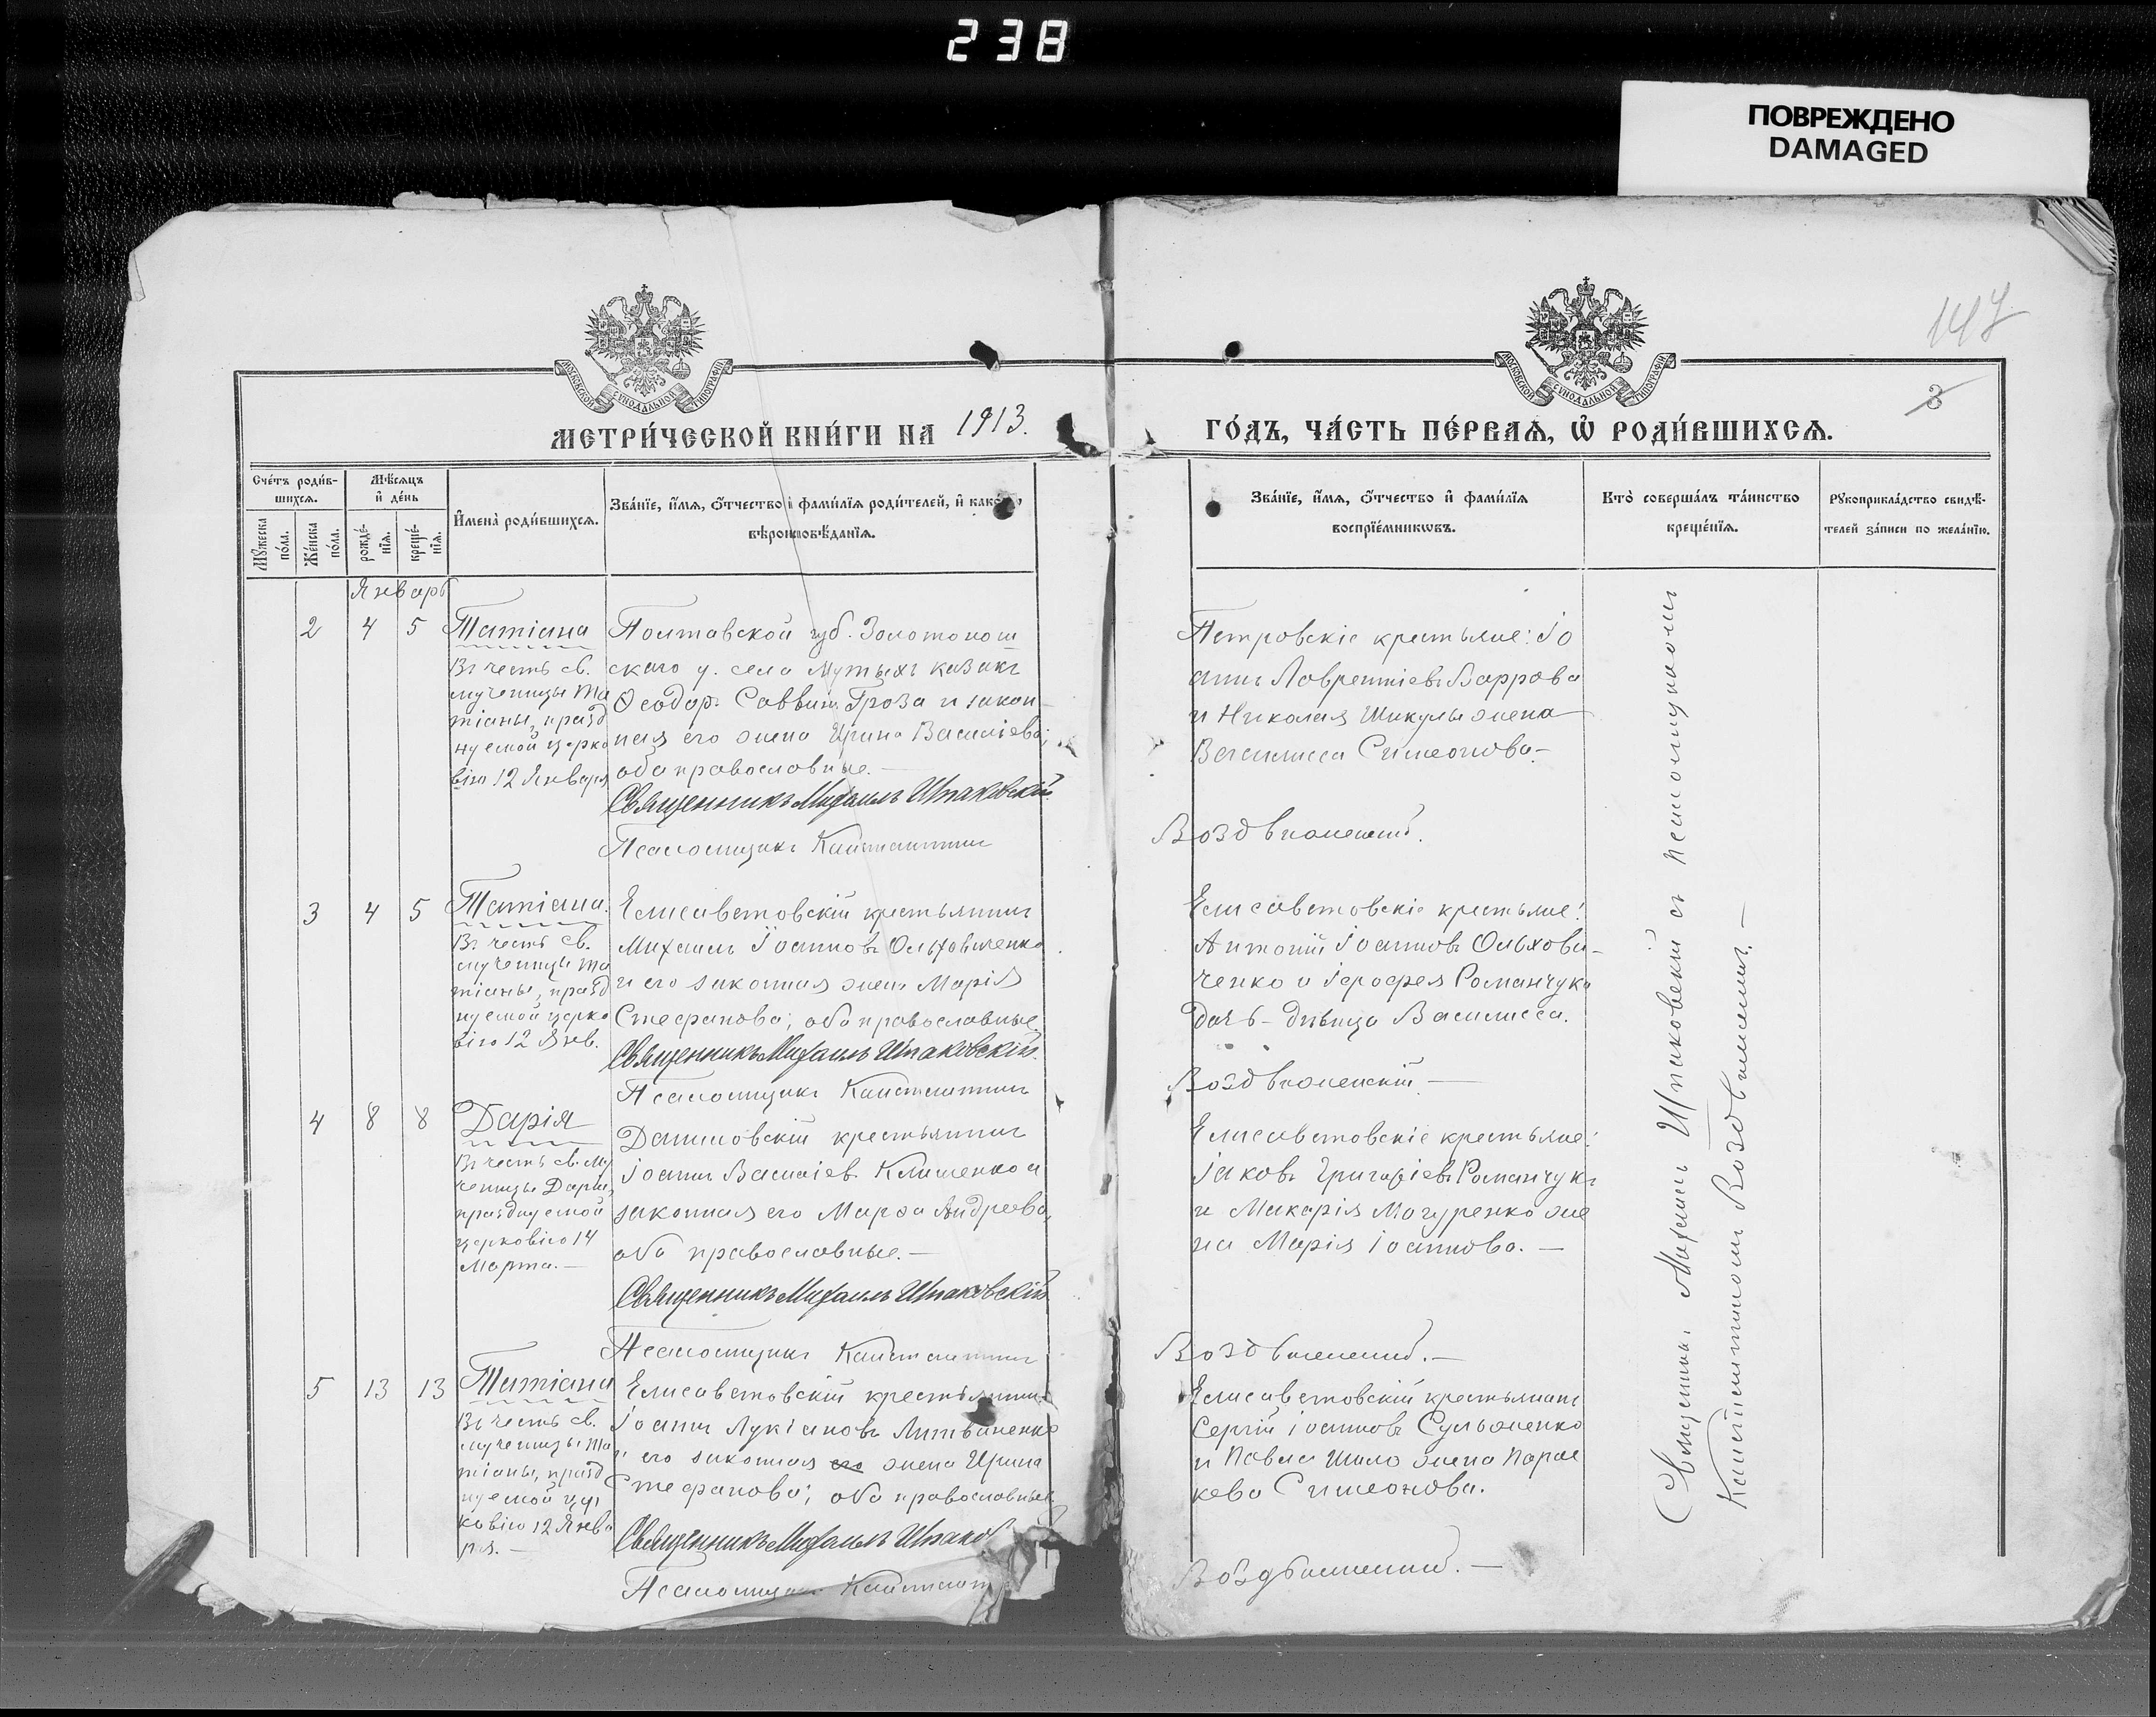 238
ПОВРЕЖДЕНО
DAMAGED
147
3
МОСКОВСКОЙ СѴНОДАЛЬНОЙ ТИПОГРАФІИ
МОСКОВСКОЙ СѴНОДАЛЬНОЙ ТИПОГРАФІИ
МЕТРИ́ЧЕСКОЙ КНИ́ГИ НА 1913.
ГО́ДЪ, ЧА́СТЬ ПЕ́РВАѦ, Ѡ҆ РОДИ́ВШИХСѦ.
Сче́тъ роди́в-
шихсѧ.
Мꙋ́жеска по́ла.
Же́нска по́ла.
Мѣ́сѧцъ
и҆ де́нь
рожде́-
нїѧ.
креще́-
нїѧ.
И҆мена̀ роди́вшихсѧ.
Зва́нїе, и҆́мѧ, ѻ҆́тчество и҆ фами́лїѧ роди́телей, и҆ како́гѡ
вѣроисповѣ́данїѧ.
Зва́нїе, и҆́мѧ, ѻ҆́тчество и҆ фами́лїѧ
воспрїе́мникѡвъ.
Кто̀ соверша́лъ та́инство
креще́нїѧ.
Рꙋкоприкла́дство свидѣ́-
телей за́писи по жела́нїю.
Январь
2 4 5 Татіана
Въ честь св.
мученицы Та
тіаны, празд
нуемой церко
вію 12 Января
Полтавской губ. Золотонош
скаго у. села казакъ
Ѳеодоръ Саввинъ Гроза и закон-
ная его жена Ирина Василіева;
оба православные.—
Священникъ Михаилъ Шпаковскій.
Псаломщикъ Константинъ
Петровскіе крестьяне: Іо
аннъ Лаврентіевъ
и Николая Шикулы жена
Василисса Симеонова.—
Воздвиженскій.
3 4 5 Татіана.
Въ честь св.
мученицы Та
тіаны, празд
нуемой церко
вію 12 Янв.
Елисаветовскій крестьянинъ
Михаилъ Іоанновъ Ольховиченко
и его законная жена Марія
Стефанова; оба православные.
Священникъ Михаилъ Шпаковскій.
Псаломщикъ Константинъ
Елисаветовскіе крестьяне:
Антоній Іоанновъ Ольхови-
ченко и Іероѳея Романчука
дочь - дѣвица Василисса.
Воздвиженскій —
4 8 8 Дарія
Въ честь св. му
ченицы Даріи,
празднуемой
церковію 14
Марта.—
Даниловскій крестьянинъ
Іоаннъ Василіевъ Клименко и
законная его Марѳа Андреева,
оба православные.—
Священникъ Михаилъ Шпаковскій
Псаломщикъ Константинъ
Елисаветовскіе крестьяне:
Іаковъ Григоріевъ Романчукъ
и Макарія Могуренко же
на Марія Іоаннова.—
Воздвиженскій.—
5 13 13 Татіана
Въ честь св.
мученицы Та
тіаны, празд
нуемой цер
ковію 12 Янва
ря.—
Елисаветовскій крестьянинъ
Іоаннъ Лукіановъ Литвиненко
и его законная его жена Ирина
Стефанова; оба православные.
Священникъ Михаилъ Шпаков
Псаломщикъ Константин
Елисаветовскій крестьянинъ
Сергій Іоанновъ Сульженко
и Павла Шило жена Парас
кева Симеонова.
Воздвиженскій.—
Священникъ Михаилъ Шпаковскій съ псаломщикомъ
Константиномъ Воздвиженскимъ.—